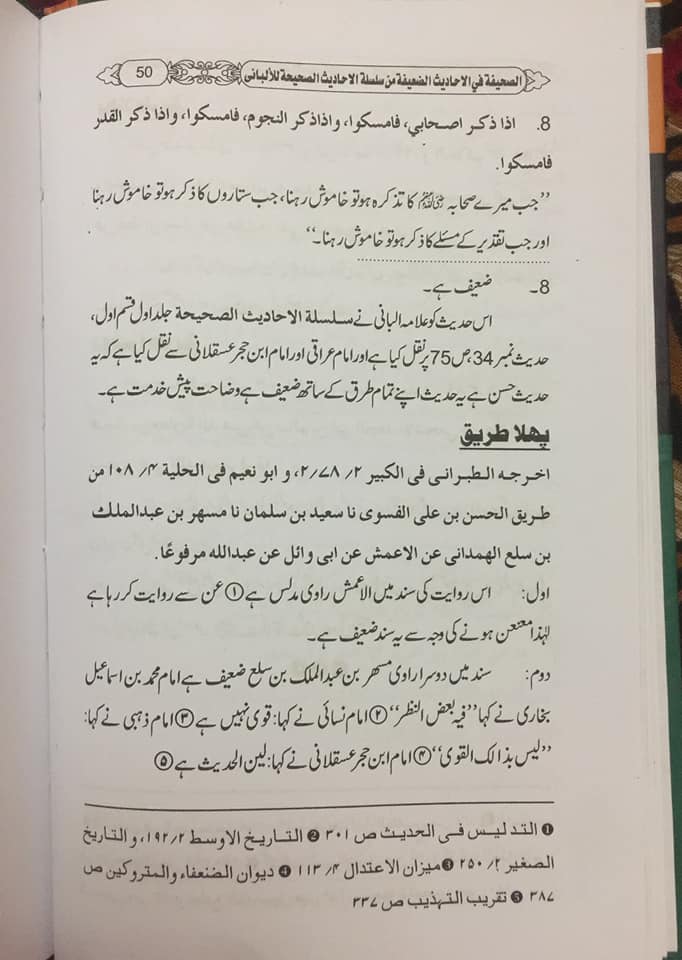 الصحيفة في الاحاديث الضعيفة من سلسلة الاحاديث الصحيحة للألبانى 50
8. اذا ذكر اصحابي، فامسكوا، واذاذكر النجوم، فامسكوا، واذا ذكر القدر
فامسكوا.
’’جب میرے صحابہ ﷺ کا تذکرہ ہو تو خاموش رہنا، جب ستاروں کا ذکر ہو تو خاموش رہنا
اور جب تقدیر کے مسئلے کا ذکر ہو تو خاموش رہنا۔‘‘
8۔ ضعیف ہے۔
اس حدیث کو علامہ البانی نے سلسلة الاحادیث الصحیحة جلد اول قسم اول،
حدیث نمبر 34،ص75 پر نقل کیا ہے اور امام عراقی اور امام ابن حجر عسقلانی سے نقل کیا ہے کہ یہ
حدیث حسن ہے یہ حدیث اپنے تمام طرق کے ساتھ ضعیف ہے وضاحت پیش خدمت ہے۔
پہلا طریق
اخرجه الطبرانى فى الكبير ۲/۷۸/۲، و ابو نعيم فى الحلية ۴/۱۰۸ من
طريق الحسن بن على الفسوى نا سعيد بن سلمان نا مسهر بن عبدالملك
بن سلع الهمدانى عن الاعمش عن ابى وائل عن عبدالله مرفوعًا.
اول: اس روایت کی سند میں الاعمش راوی مدلس ہے① عن سے روایت کر رہا ہے
لہٰذا معنعن ہونے کی وجہ سے یہ سند ضعیف ہے۔
دوم: سند میں دوسرا راوی مسھر بن عبدالملک بن سلع ضعیف ہے امام محمد بن اسماعیل
بخاری نے کہا ’’فیه بعض النظر‘‘② امام نسائی نے کہا: قوی نہیں ہے③ امام ذہبی نے کہا:
’’لیس بذالک القوی‘‘④ امام ابن حجر عسقلانی نے کہا: لین الحدیث ہے⑤
❶ التدليس فى الحديث ص ۳۰۱ ❷ التاريخ الاوسط ۱۹۲/۲، و التاريخ
الصغير ۲۵۰/۲ ❸ميزان الاعتدال ۱۱۳/۴ ❹ ديوان الضنعفاء والمتروكين ص
۳۸۷ ❺ تقريب التهذيب ص ۳۳۷